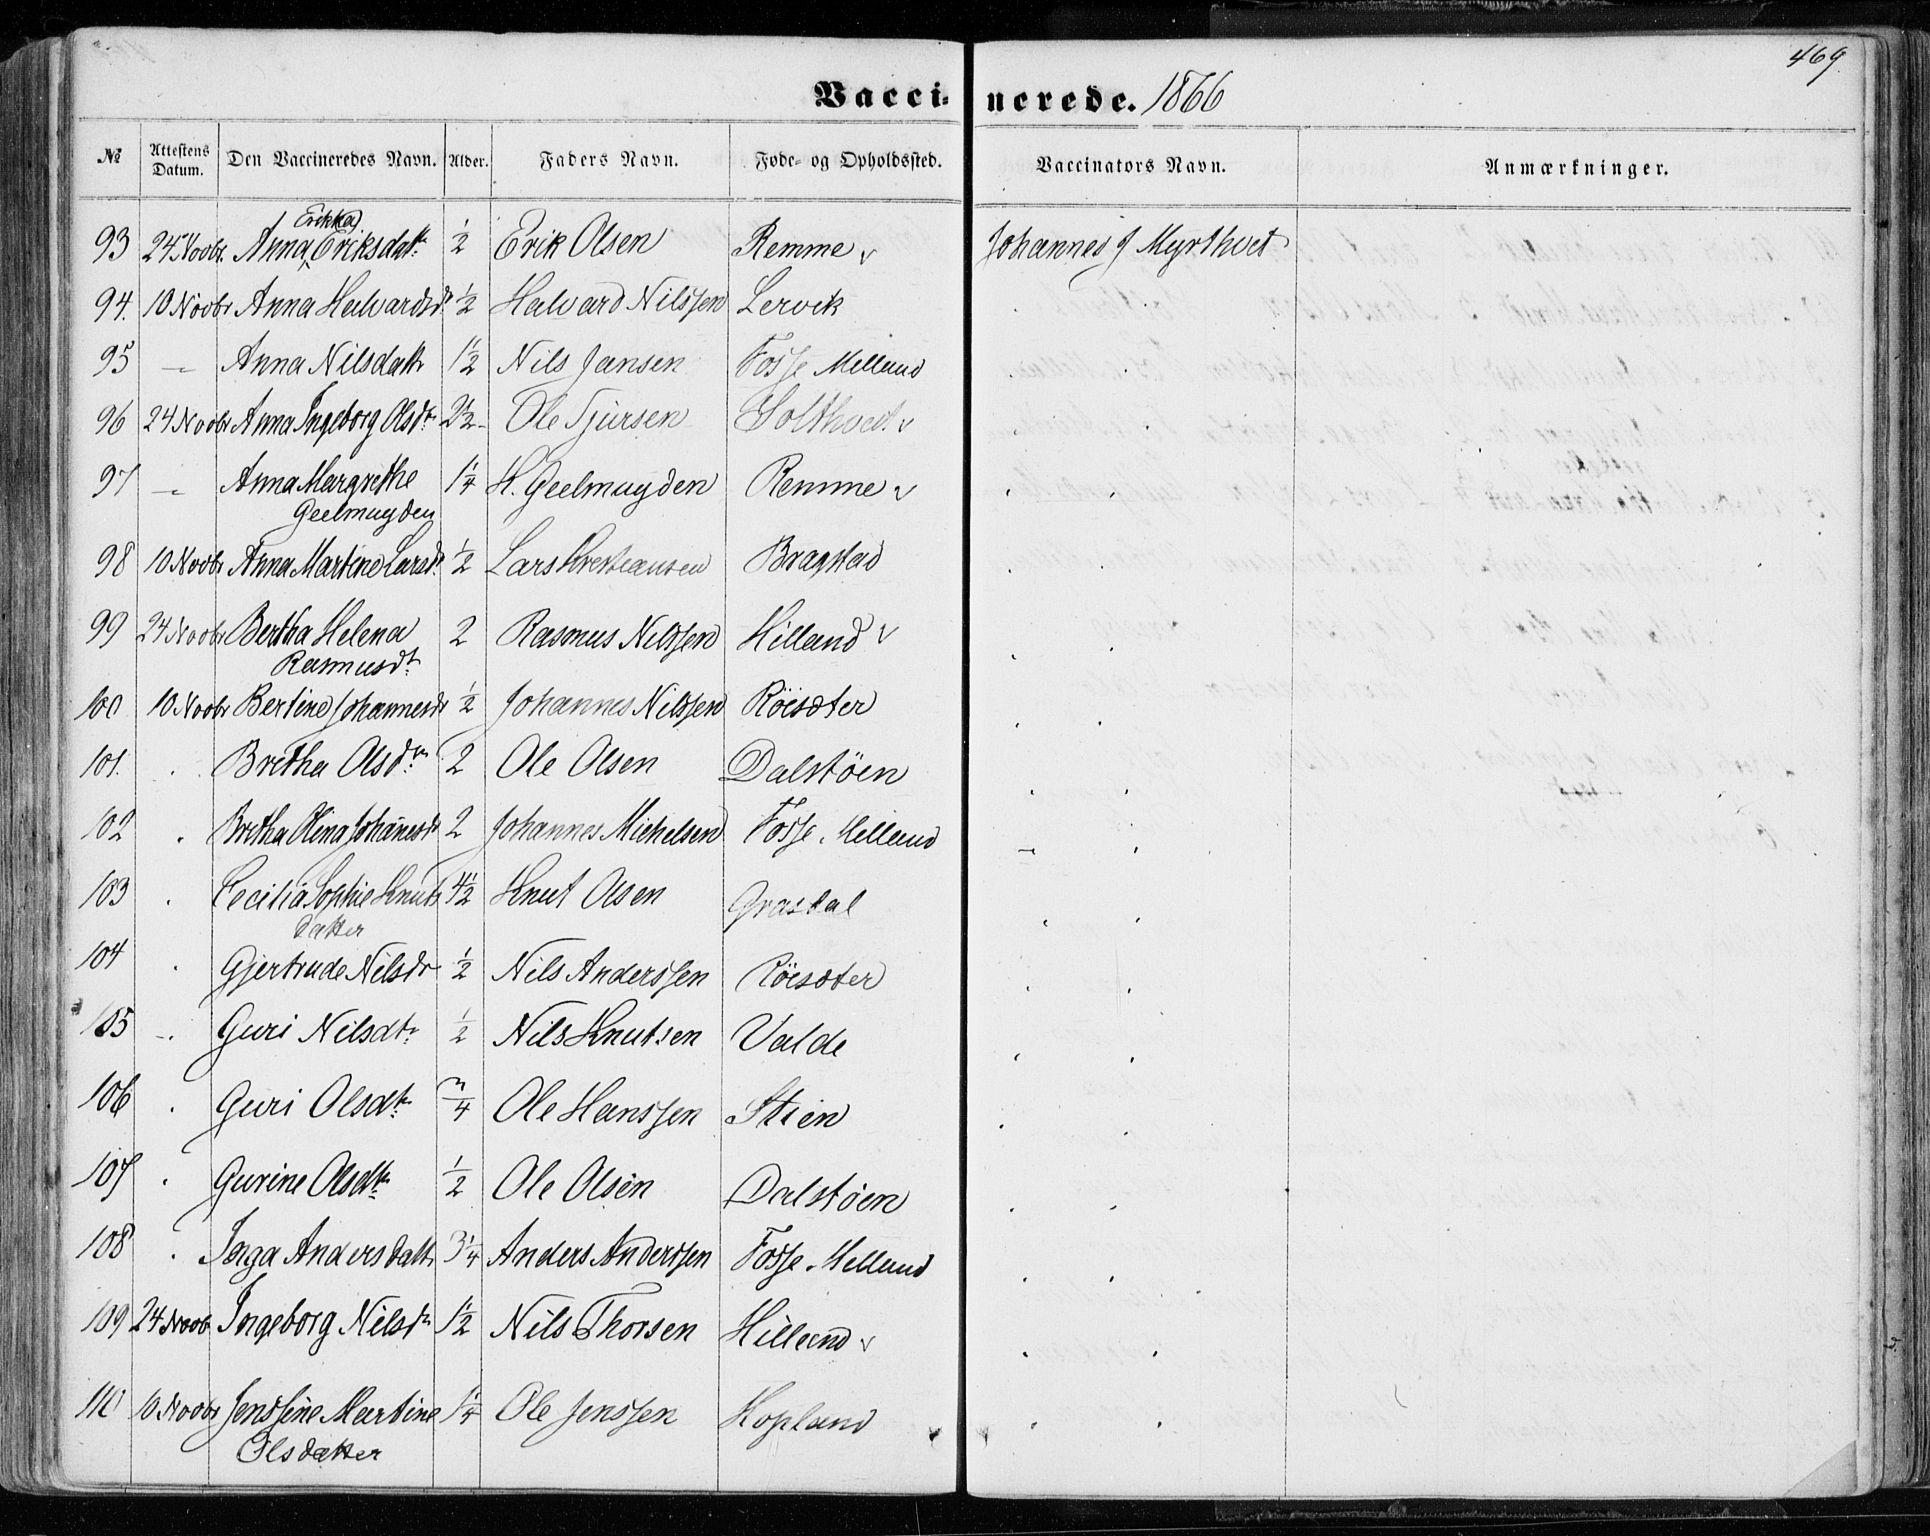 469.
Vaccinerede. 1866
№ Attestens Datum. Den Vaccineredes Navn. Alder. Faders Navn. Føde- og Opholdssted. Vaccinators Navn. Anmærkninger.
Erikka
93 24 Novbr. Anna Eriksdatr 1/2 Erik Olsen Remme v Johannes J Myrthvet
94. 10 Novbr Anna Halvardsdr 1/2 Halvard Nilssen Lervik
95 — Anna Nilsdattr 1 1/2 Nils Jansen Fosse Melland
96 24 Novbr Anna Ingeborg Olsdtr 2 1/2 Ole Tjursen Solthvedt v
97 — Anna Margrethe 1 1/4 H. Geelmuyden Remme v
Geelmuyden
98 10 Novbr Anna Martine Larsdr 1/2 Lars Kristiansen Bragstad
99 24 Novbr Bertha Helena 2 Rasmus Nilssen Hilland v
Rasmusdtr
100 10 Novbr Bertine Johannesdr 1/2 Johannes Nilssen Röisæter
101. . Bretha Olsdtr 2 Ole Olsen Dalstöen
102 . Bretha Olina Johañesdr 2 Johannes Michelsen Fosse Melland
103 . Cecilia Sophie Knuts 4 1/2 Knut Olsen Grasdal
datter
104 . Gjertrude Nilsdr 1/2 Nils Anderssen Röisæter
105 -. Guri Nilsdtr 1/2 Nils Knutsen Valde
106 . Guri Olsdtr 3/4 Ole Hanssen Stien
107 . Gurine Olsdtr 1/2 Ole Olsen Dalstöen
108 . Inga Andersdattr 3 1/4 Anders Anderssen Fosse Melland
109 24 Novbr Ingeborg Nilsdr 1 1/2 Nils Thorsen Hilland v
110 10 Novbr Jenssine Martine 1 1/4 Ole Jenssen Hopland
Olsdatter